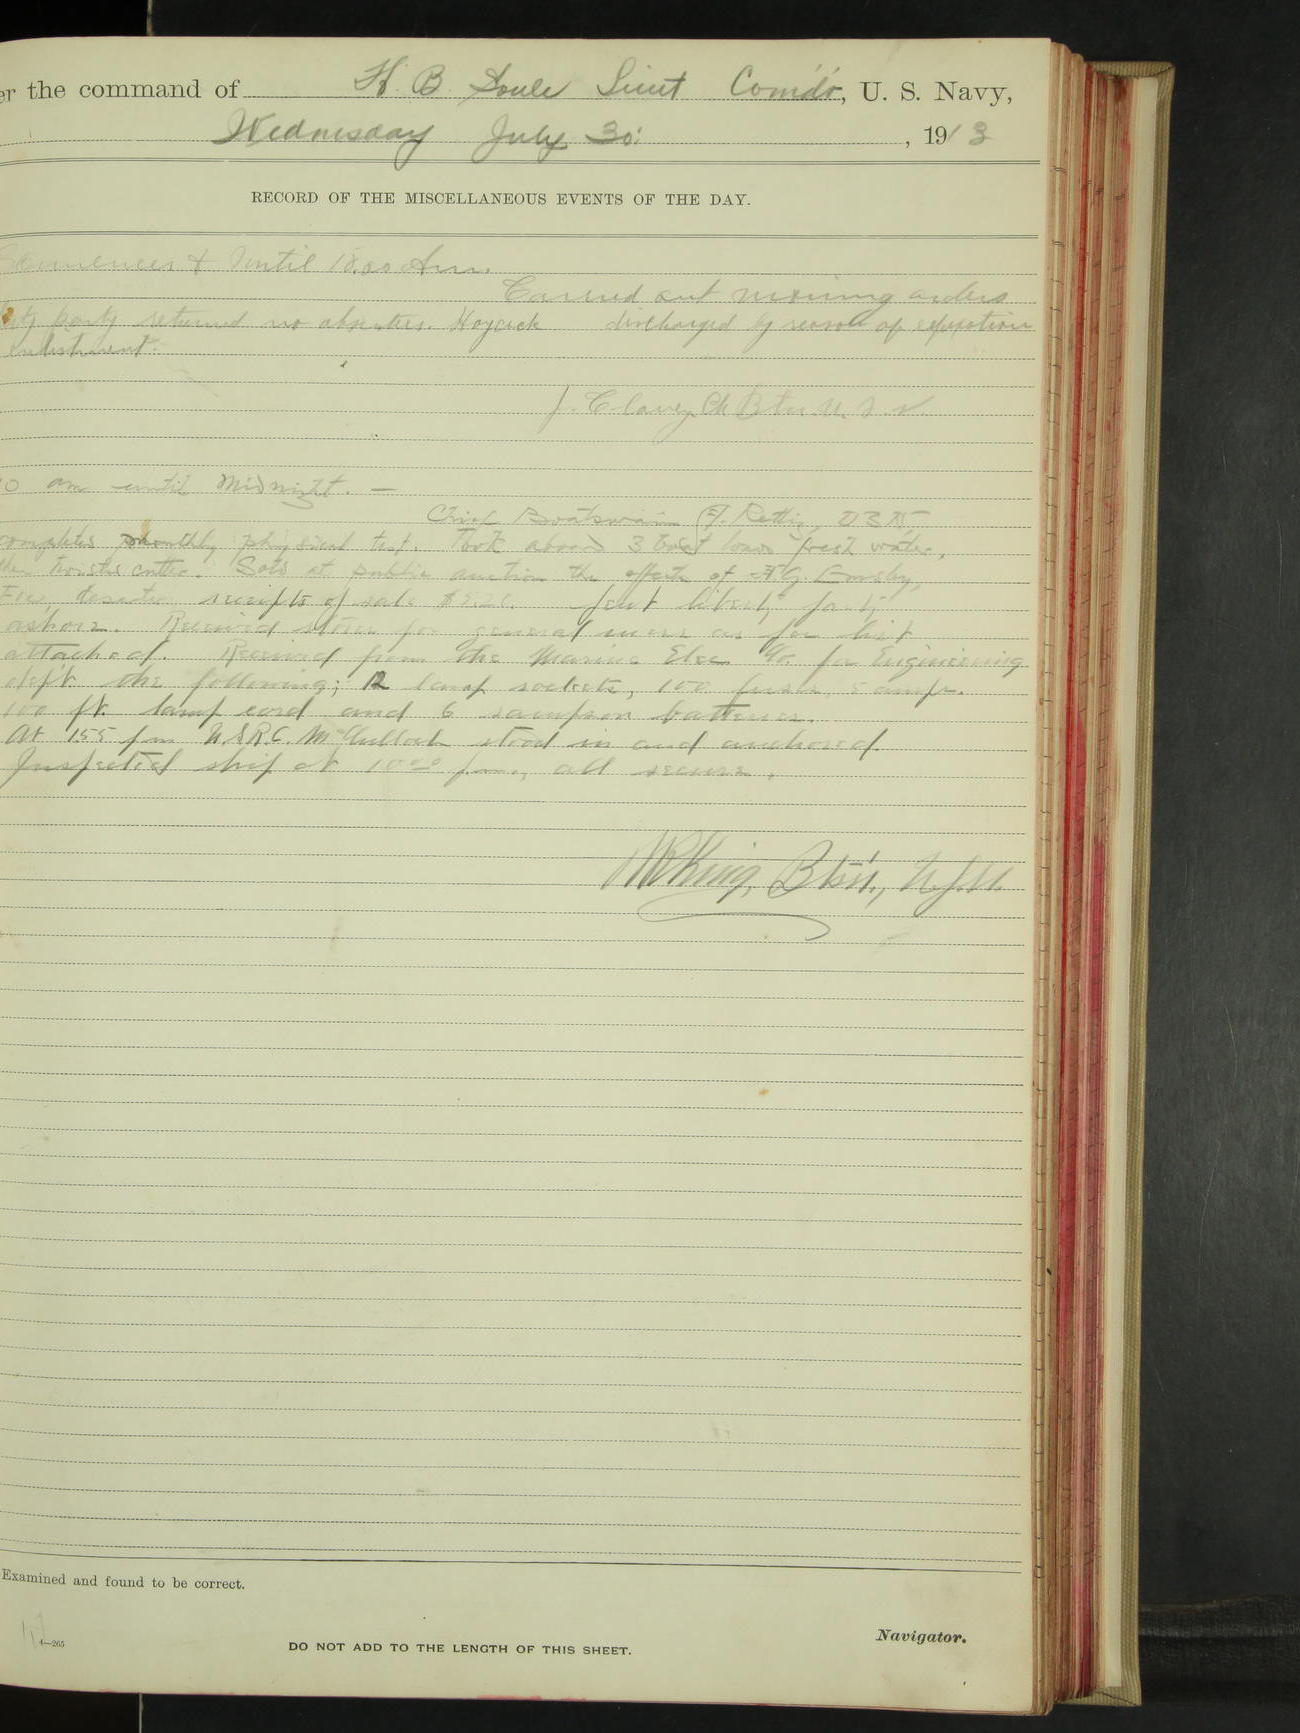 er the command of H. B. Soule Lieut Com'd'r, U. S. Navy,
Wednesday July 30, 1913
RECORD OF THE MISCELLANEOUS EVENTS OF THE DAY.
Commences & Until 10.00 Am.
Carried out morning orders
party returned no absentees. Haycock discharged by reason of expiration
enlistment.
J. Clancy Ch Btsn U.S.N
0 am until Midnight. —
Chief Boatswain F. Rettig, U S N,
completed monthly physical test. Took aboard 3 boat loads fresh water,
cutter. Sold at public auction the effects of
deserter receipts of sale Sent liberty party
ashore. Received stores for general mess as per list
attached. Received from the Marine Elec Co. for Engineering
dep't the following; 12 lamp sockets, 100 fuses, 5 amps.
100 ft. lamp cord and 6 sampson batteries.
At 155 pm U.S.R.C. McCulloch stood in and anchored.
Inspected ship at 10 00 p.m., all secure.
King, Bts'n., U.S.N.
Examined and found to be correct.
4—265
DO NOT ADD TO THE LENGTH OF THIS SHEET.
Navigator.